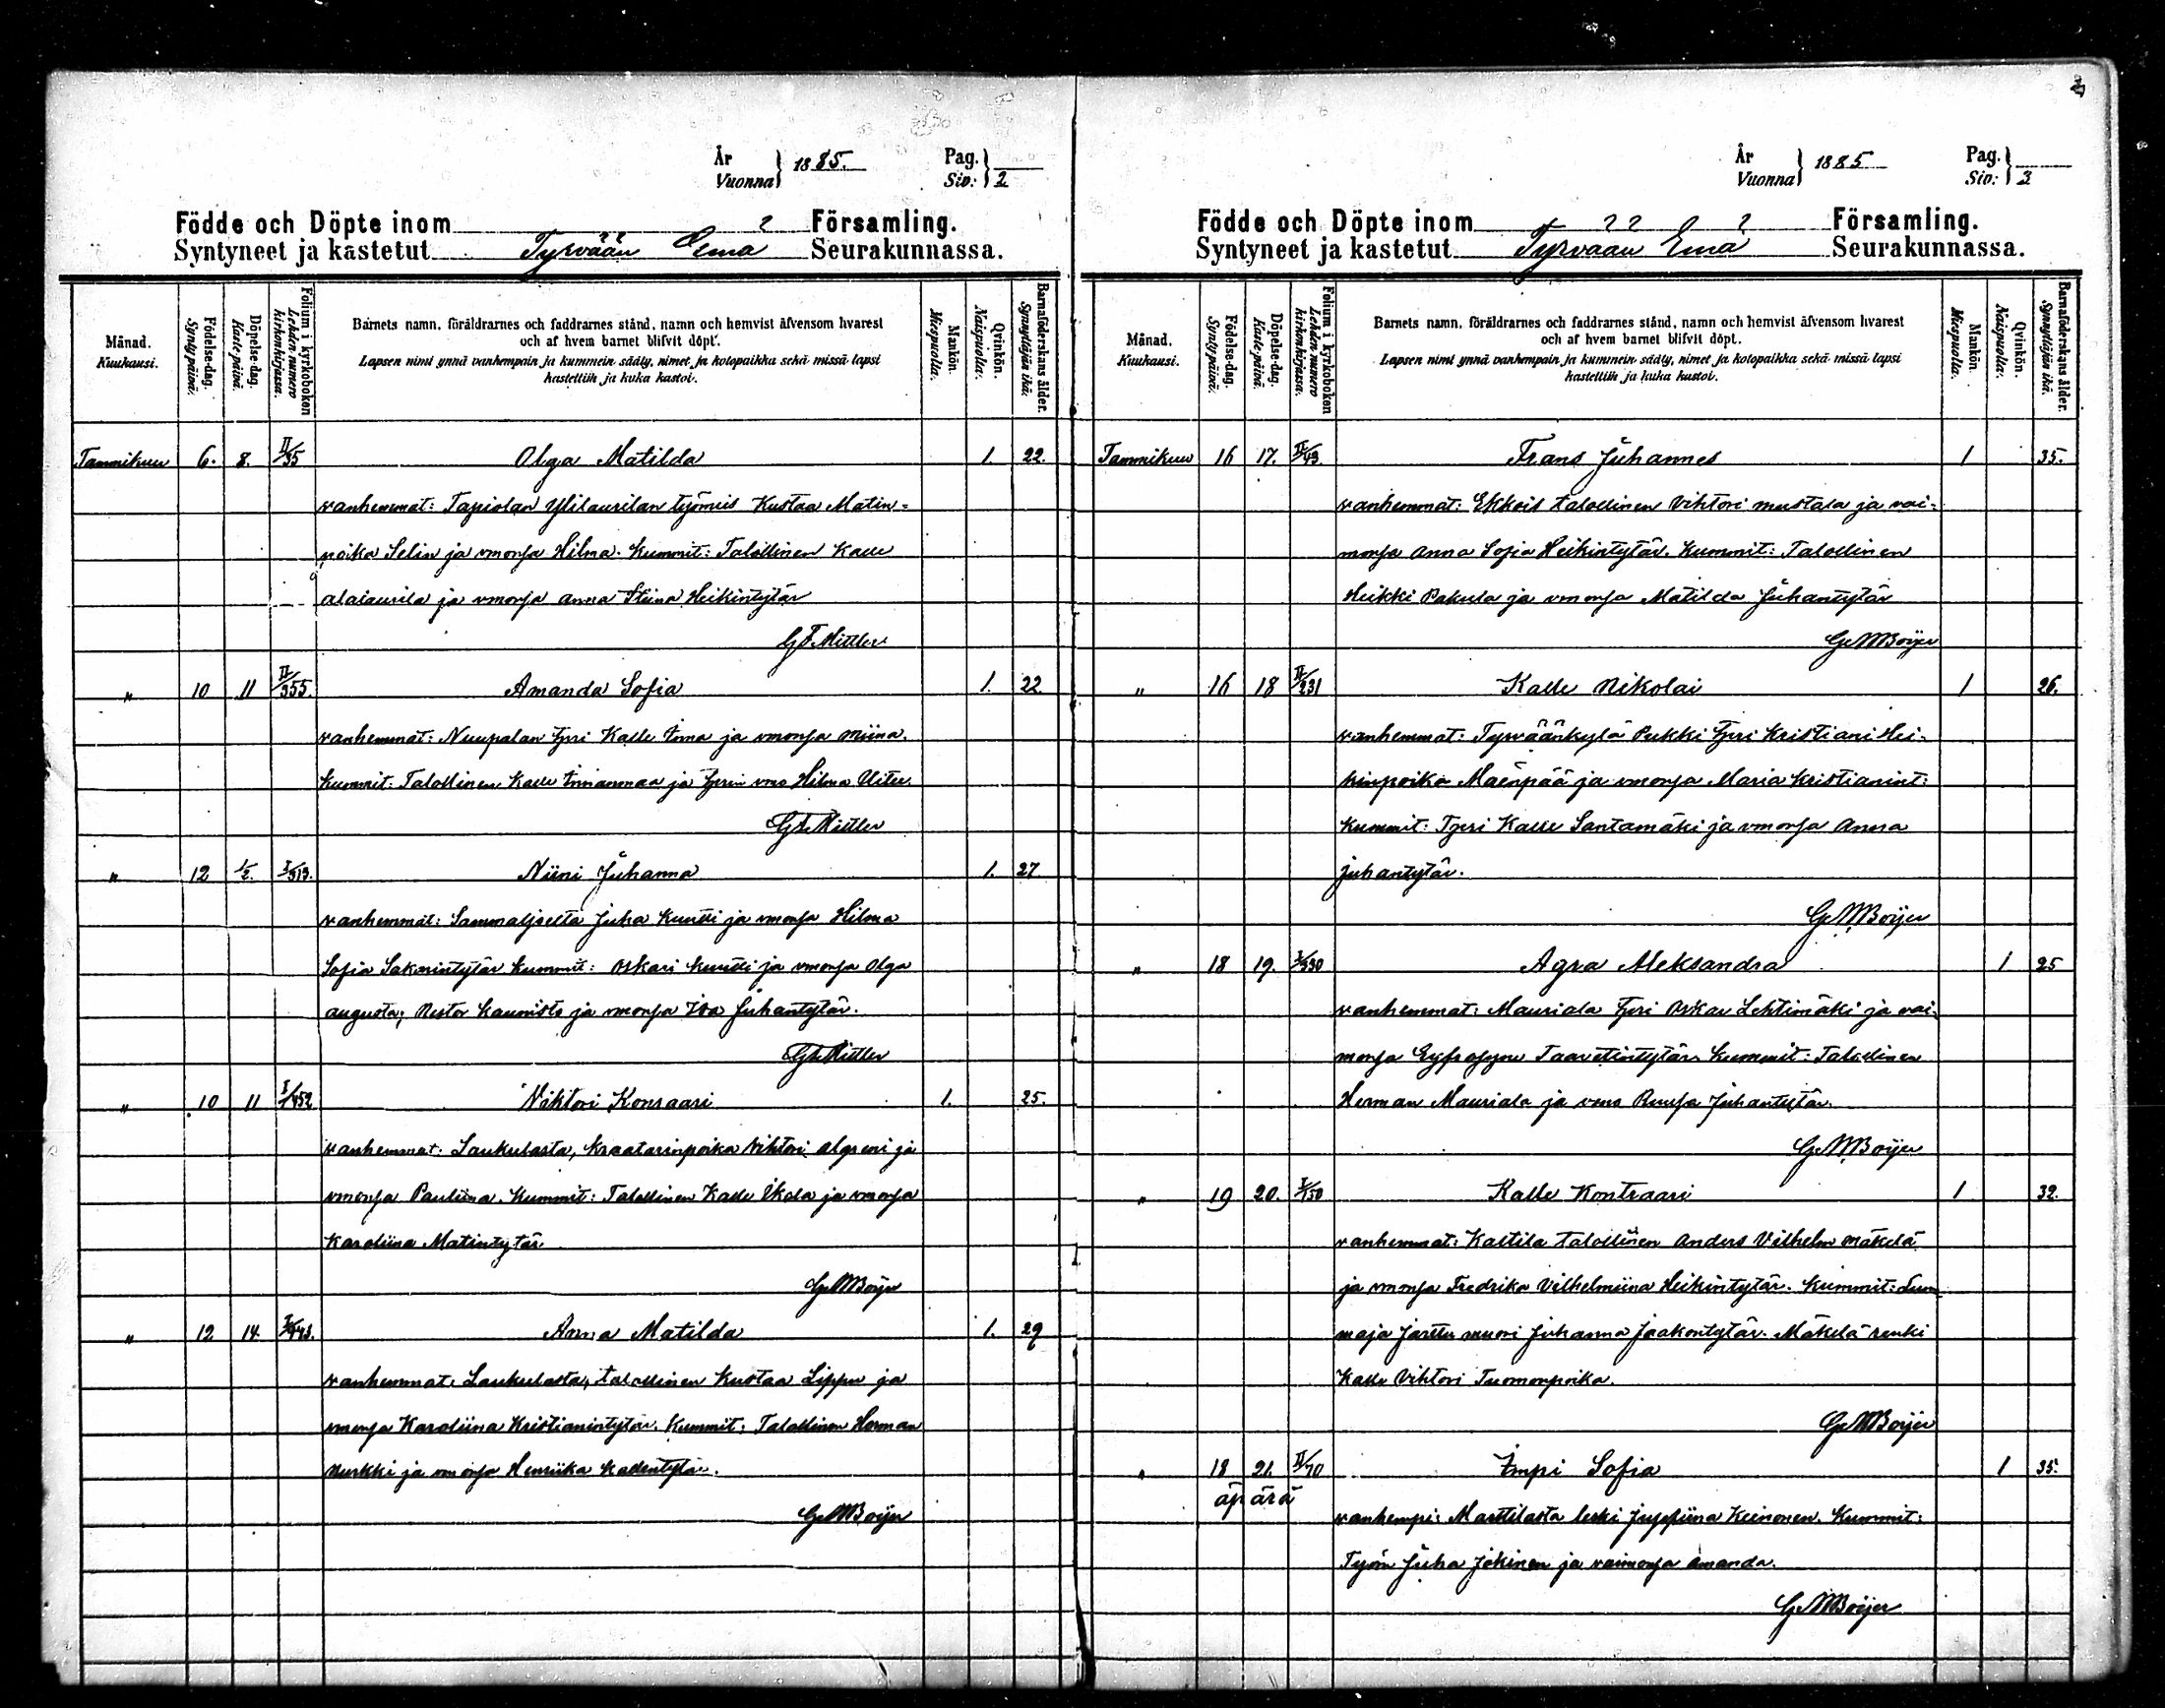 År
Vuonna } 1885.
Pag.
Siv: } 2
Födde och Döpte inom Församling.
Syntyneet ja kastetut Tyrvään Emä Seurakunnassa.
Månad.
Kuukausi.
Födelse-dag.
Syntypäivä.
Döpelse-dag.
Kaste-päivä.
Folium i kyrkoboken
Lehden numero
kirkonkirjassa.
Barnets namn, föräldrarnes och faddrarnes stånd, namn och hemvist äfvensom hvarest
och af hvem barnet blifvit döpt.
Lapsen nimi ynnä vanhempain ja kummein sääty, nimet ja kotopaikka sekä missä lapsi
kastettiin ja kuka kastoi.
Mankön.
Miespuolia.
Qvinkön.
Naispuolia.
Barnaföderskans ålder.
Synnyttäjän ikä.
Tammikuu 6. 8. II/35 Olga Matilda 1. 22.
vanhemmat: Tapiolan Ylilaurilan työmies Kustaa Matin-
poika Selin ja vmonsa Hilma. Kummit: Talollinen Kalle
alalaurila ja vmonsa Anna Stiina Heikintytär
G F Mittler
" 10 11 II/355. Amanda Sofia 1. 22
vanhemmat: Nuupalan Tpri Kalle ja vmonsa Miina.
Kummit: Talollinen Kalle ja Tprin vmo Hilma
G F Mittler
" 12 1/2. I/313. Niini Juhanna 1. 27
vanhemmat: Sammaljoelta Juha Kuutti ja vmonsa Hilma
Sofia Sakarintytär Kummit: Oskari Kuutti ja vmonsa Olga
augusta; Nestor Kaunisto ja vmonsa Ida Juhantytär.
G F Mittler
" 10 11 I/452 Viktori Konraari 1. 25.
vanhemmat: Laukulasta, Kraatarinpoika Vihtori Algreni ja
vmonsa Pauliina. Kummit: Talollinen Kalle Ikola ja vmonsa
Karoliina Matintytär
G M Boijer
" 12 14. I/443. Anna Matilda 1. 29
vanhemmat: Laukulasta, talollinen Kustaa Lippu ja
vmonsa Karoliina Kristianintytär. Kummit: Talollinen Herman
Nurkki ja vmonsa Henriika Kallentytär.
G M Boijer
År
Vuonna } 1885
Pag.
Siv: } 3
Födde och Döpte inom Församling.
Syntyneet ja kastetut Tyrvään Emä Seurakunnassa.
Månad.
Kuukausi.
Födelse-dag.
Syntypäivä.
Döpelse-dag.
Kaste-päivä.
Folium i kyrkoboken
Lehden numero
kirkonkirjassa.
Barnets namn, föräldrarnes och faddrarnes stånd, namn och hemvist äfvensom hvarest
och af hvem barnet blifvit döpt.
Lapsen nimi ynnä vanhempain ja kummein sääty, nimet ja kotopaikka sekä missä lapsi
kastettiin ja kuka kastoi.
Mankön.
Miespuolia.
Qvinkön.
Naispuolia.
Barnaföderskans ålder.
Synnyttäjän ikä.
Tammikuu 16 17. II/49. Frans Juhannes 1 35.
vanhemmat: Ekkois talollinen Vihtori mustala ja vai-
monsa Anna Sofia Heikintytär. Kummit: Talollinen
Heikki Pakula ja vmonsa Matilda Juhantytär
G M Boijer
" 16 18 II/231 Kalle Nikolai 1 26.
vanhemmat: Tyrväänkylä Pukki Tpri Kristiani Hei-
kinpoika Mäenpää ja vmonsa Maria Kristianint:
Kummit: Tpri Kalle Santamäki ja vmonsa Anna
juhantytär.
G M Boijer
" 18 19. I/330 Agra Aleksandra 1 25
vanhemmat: Mauriala Tpri Oskar Lehtimäki ja vai-
monsa Taavetintytär. Kummit: Talollinen
Herman Mauriala ja vmo Ruusa Juhantytär.
G M Boijer
" 19 20. I/150 Kalle Kontraari 1 32.
vanhemmat: Kaltila talollinen Anders Vilhelm Mäkelä
ja vmonsa Fredrika Vilhelmiina Heikintytär. Kummit: Lum-
maja muori Juhanna Jaakontytär. Mäkelä renki
Kalle Vihtori Tuomonpoika.
G M Boijer
" 18 21. II/70 Impi Sofia 1 35.
äpärä
vanhempi: Marttilasta leski Keinonen. Kummit:
Työm Juha Jokinen ja vaimonsa Amanda.
G M Boijer